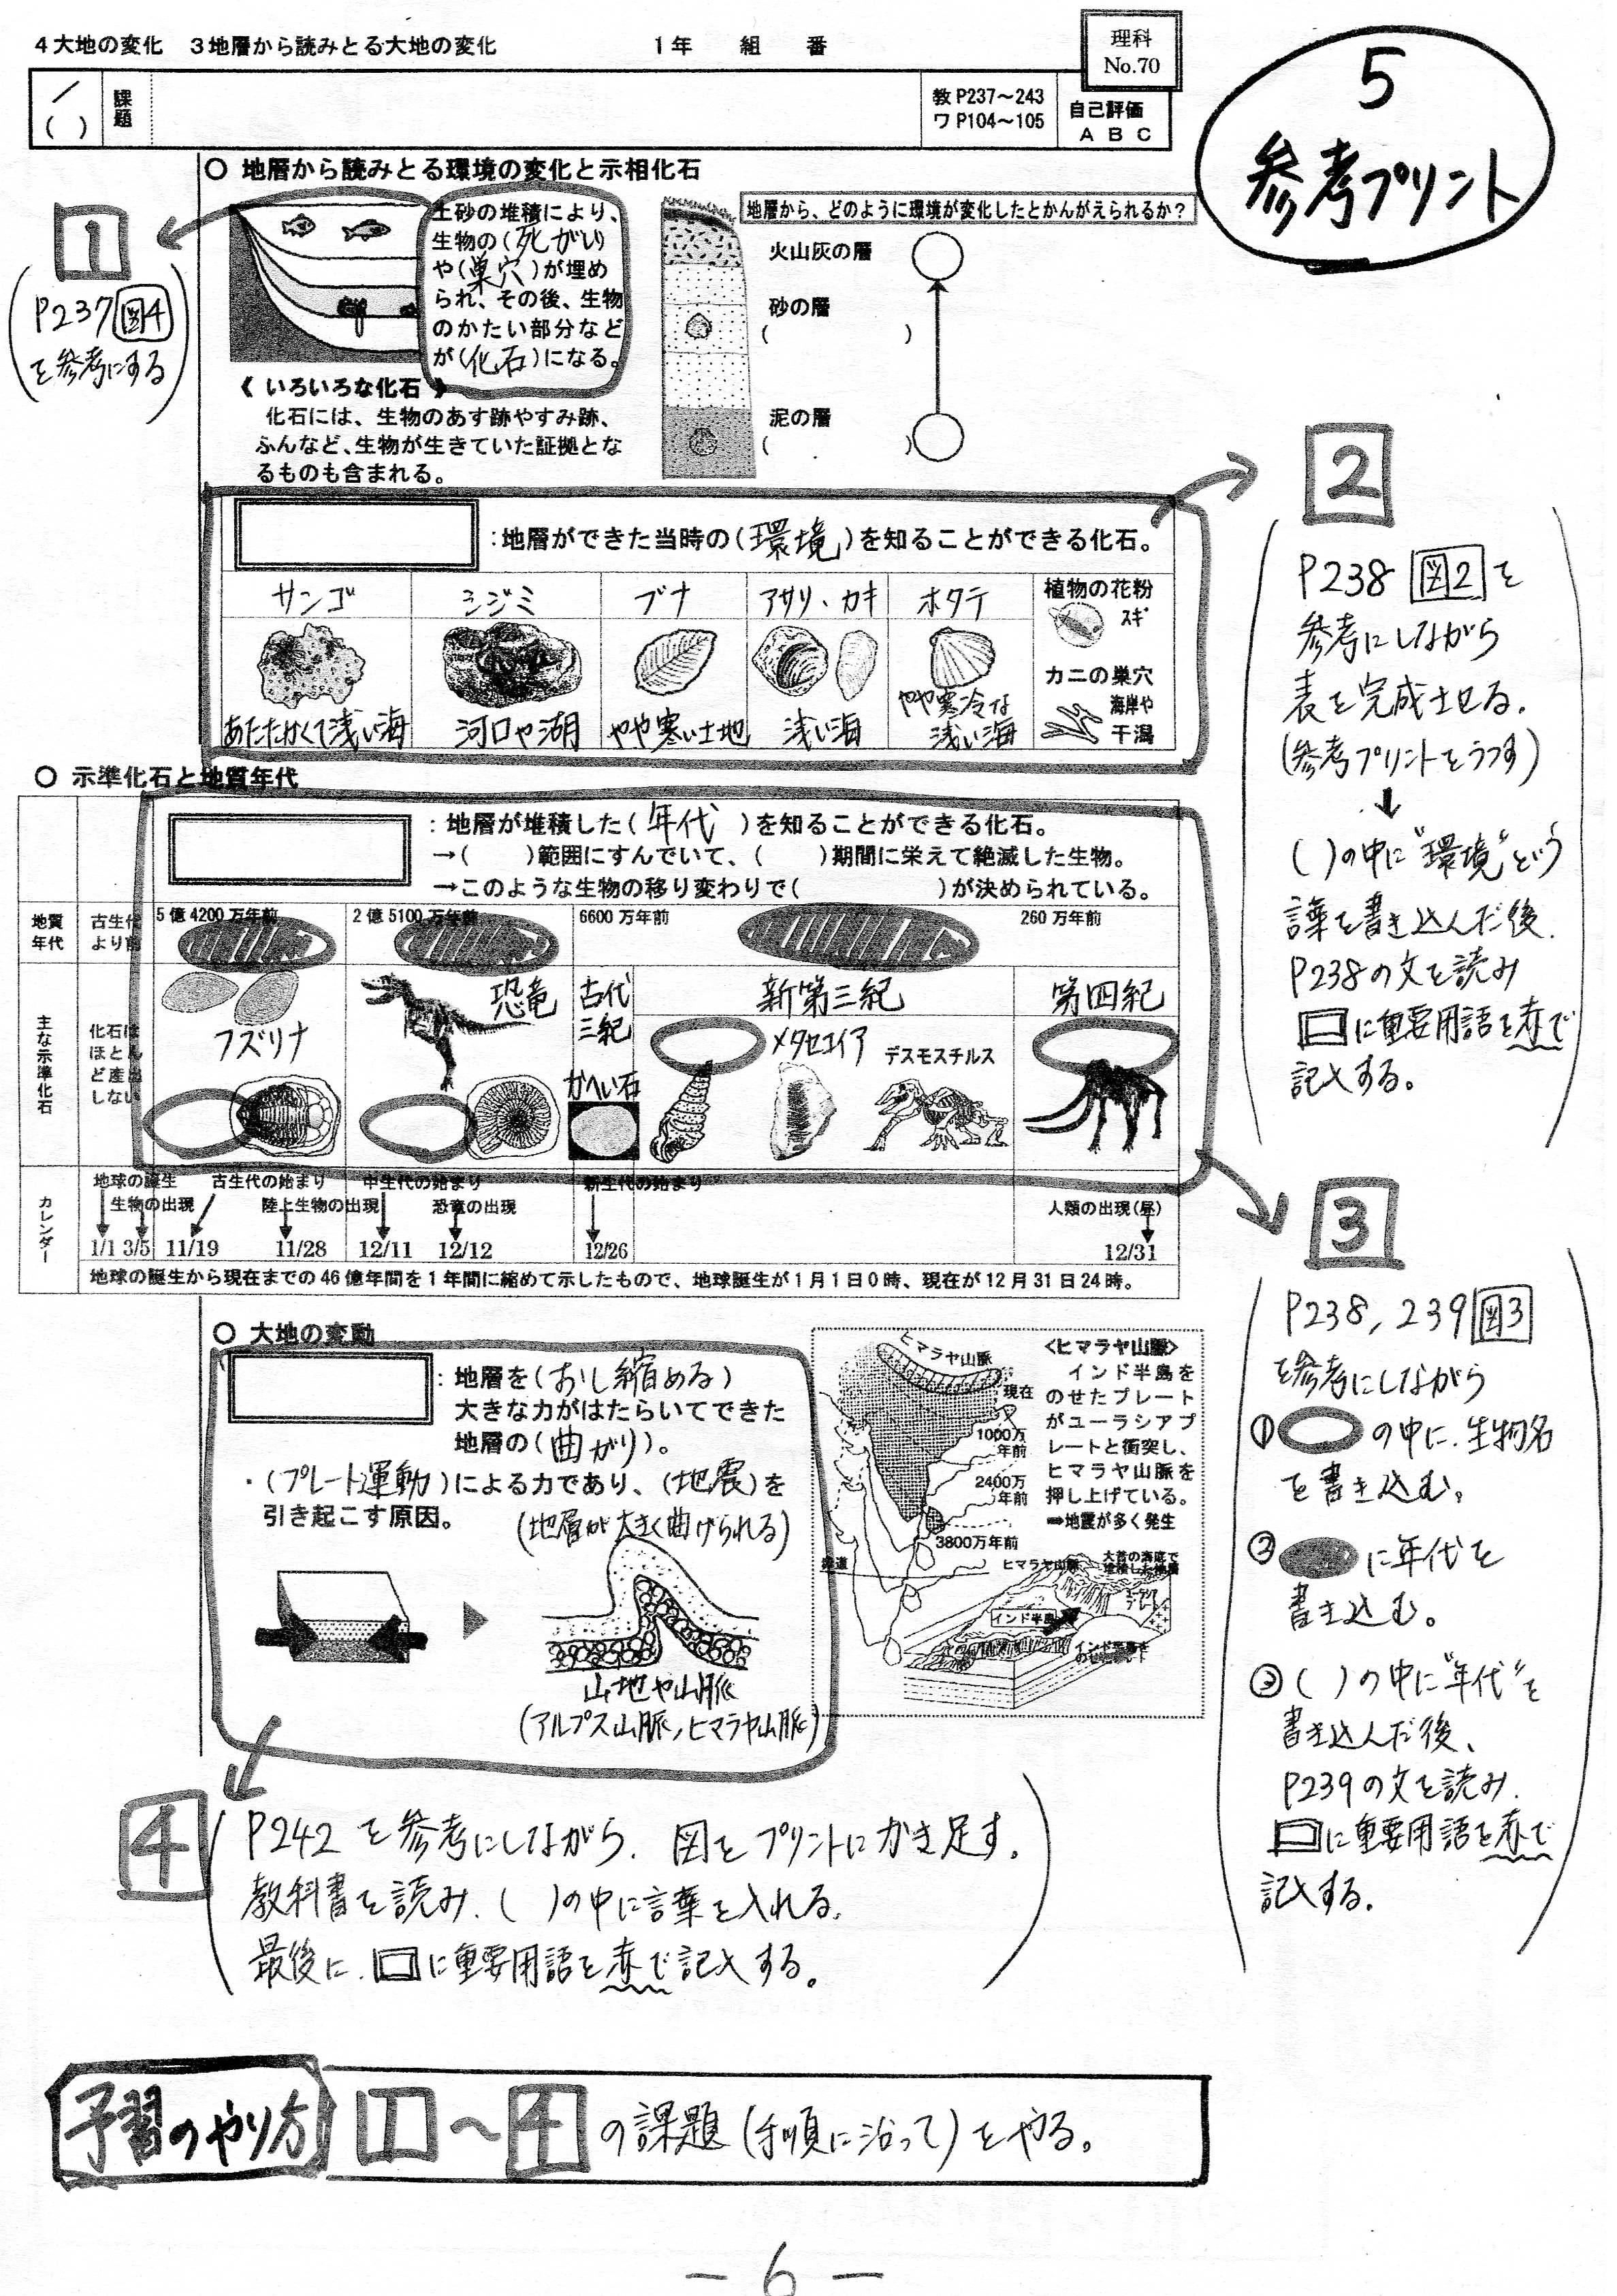 4大地の変化 3地層から読みとる大地の変化 1年 組 番
理科
No.70
5
参考プリント
／
( )
課題
教P237～243
ワP104～105
自己評価
A B C
○ 地層から読みとる環境の変化と示相化石
1
(P237 図4
を参考にする)
土砂の堆積により、
生物の(死がい)
や(巣穴)が埋め
られ、その後、生物
のかたい部分など
が(化石)になる。
《いろいろな化石》
化石には、生物のあす跡やすみ跡、
ふんなど、生物が生きていた証拠とな
るものも含まれる。
地層から、どのように環境が変化したとかんがえられるか？
火山灰の層
砂の層
( )
泥の層
( )
2
:地層ができた当時の(環境)を知ることができる化石。
サンゴ シジミ ブナ アサリ、カキ ホタテ
植物の花粉
スギ
カニの巣穴
海岸や
干潟
あたたかくて浅い海 河口や湖 やや寒い土地 浅い海 やや寒冷な
浅い海
P238 図2を
参考にしながら
表を完成させる。
(参考プリントをうつす)
↓
( )の中に"環境"という
言葉を書き込んだ後、
P238の文を読み
□に重要用語を赤で
記入する。
○ 示準化石と地質年代
:地層が堆積した(年代)を知ることができる化石。
→( )範囲にすんでいて、( )期間に栄えて絶滅した生物。
→このような生物の移り変わりで( )が決められている。
地質
年代
古生代
より前
5億4200万年前 2億5100万年前 6600万年前 260万年前
主な示準化石
化石は
ほとん
ど産出
しない
フズリナ
恐竜
古代
三紀
かへい石
新第三紀
メタセコイア
デスモスチルス
第四紀
カレンダー
地球の誕生 古生代の始まり 中生代の始まり 新生代の始まり
生物の出現 陸上生物の出現 恐竜の出現 人類の出現(昼)
1/1 3/5 11/19 11/28 12/11 12/12 12/26 12/31
地球の誕生から現在までの46億年間を1年間に縮めて示したもので、地球誕生が1月1日0時、現在が12月31日24時。
3
P238, 239 図3
を参考にしながら
① の中に、生物名
を書き込む。
② に年代を
書き込む。
③ ( )の中に"年代"を
書き込んだ後、
P239の文を読み、
□に重要用語を赤で
記入する。
○ 大地の変動
:地層を(おし縮める)
大きな力がはたらいてできた
地層の(曲がり)。
・(プレート運動)による力であり、(地震)を
引き起こす原因。
(地層が大きく曲げられる)
山地や山脈
(アルプス山脈、ヒマラヤ山脈)
<ヒマラヤ山脈>
インド半島を
のせたプレート
がユーラシアプ
レートと衝突し、
ヒマラヤ山脈を
押し上げている。
⇒地震が多く発生
ヒマラヤ山脈
現在
1000万
年前
2400万
年前
3800万年前
赤道
ヒマラヤ山脈
インド半島
4
P242を参考にしながら、図をプリントにかき足す。
教科書を読み、( )の中に言葉を入れる。
最後に、□に重要用語を赤で記入する。
予習のやり方 1～4の課題(手順に沿って)をやる。
－6－